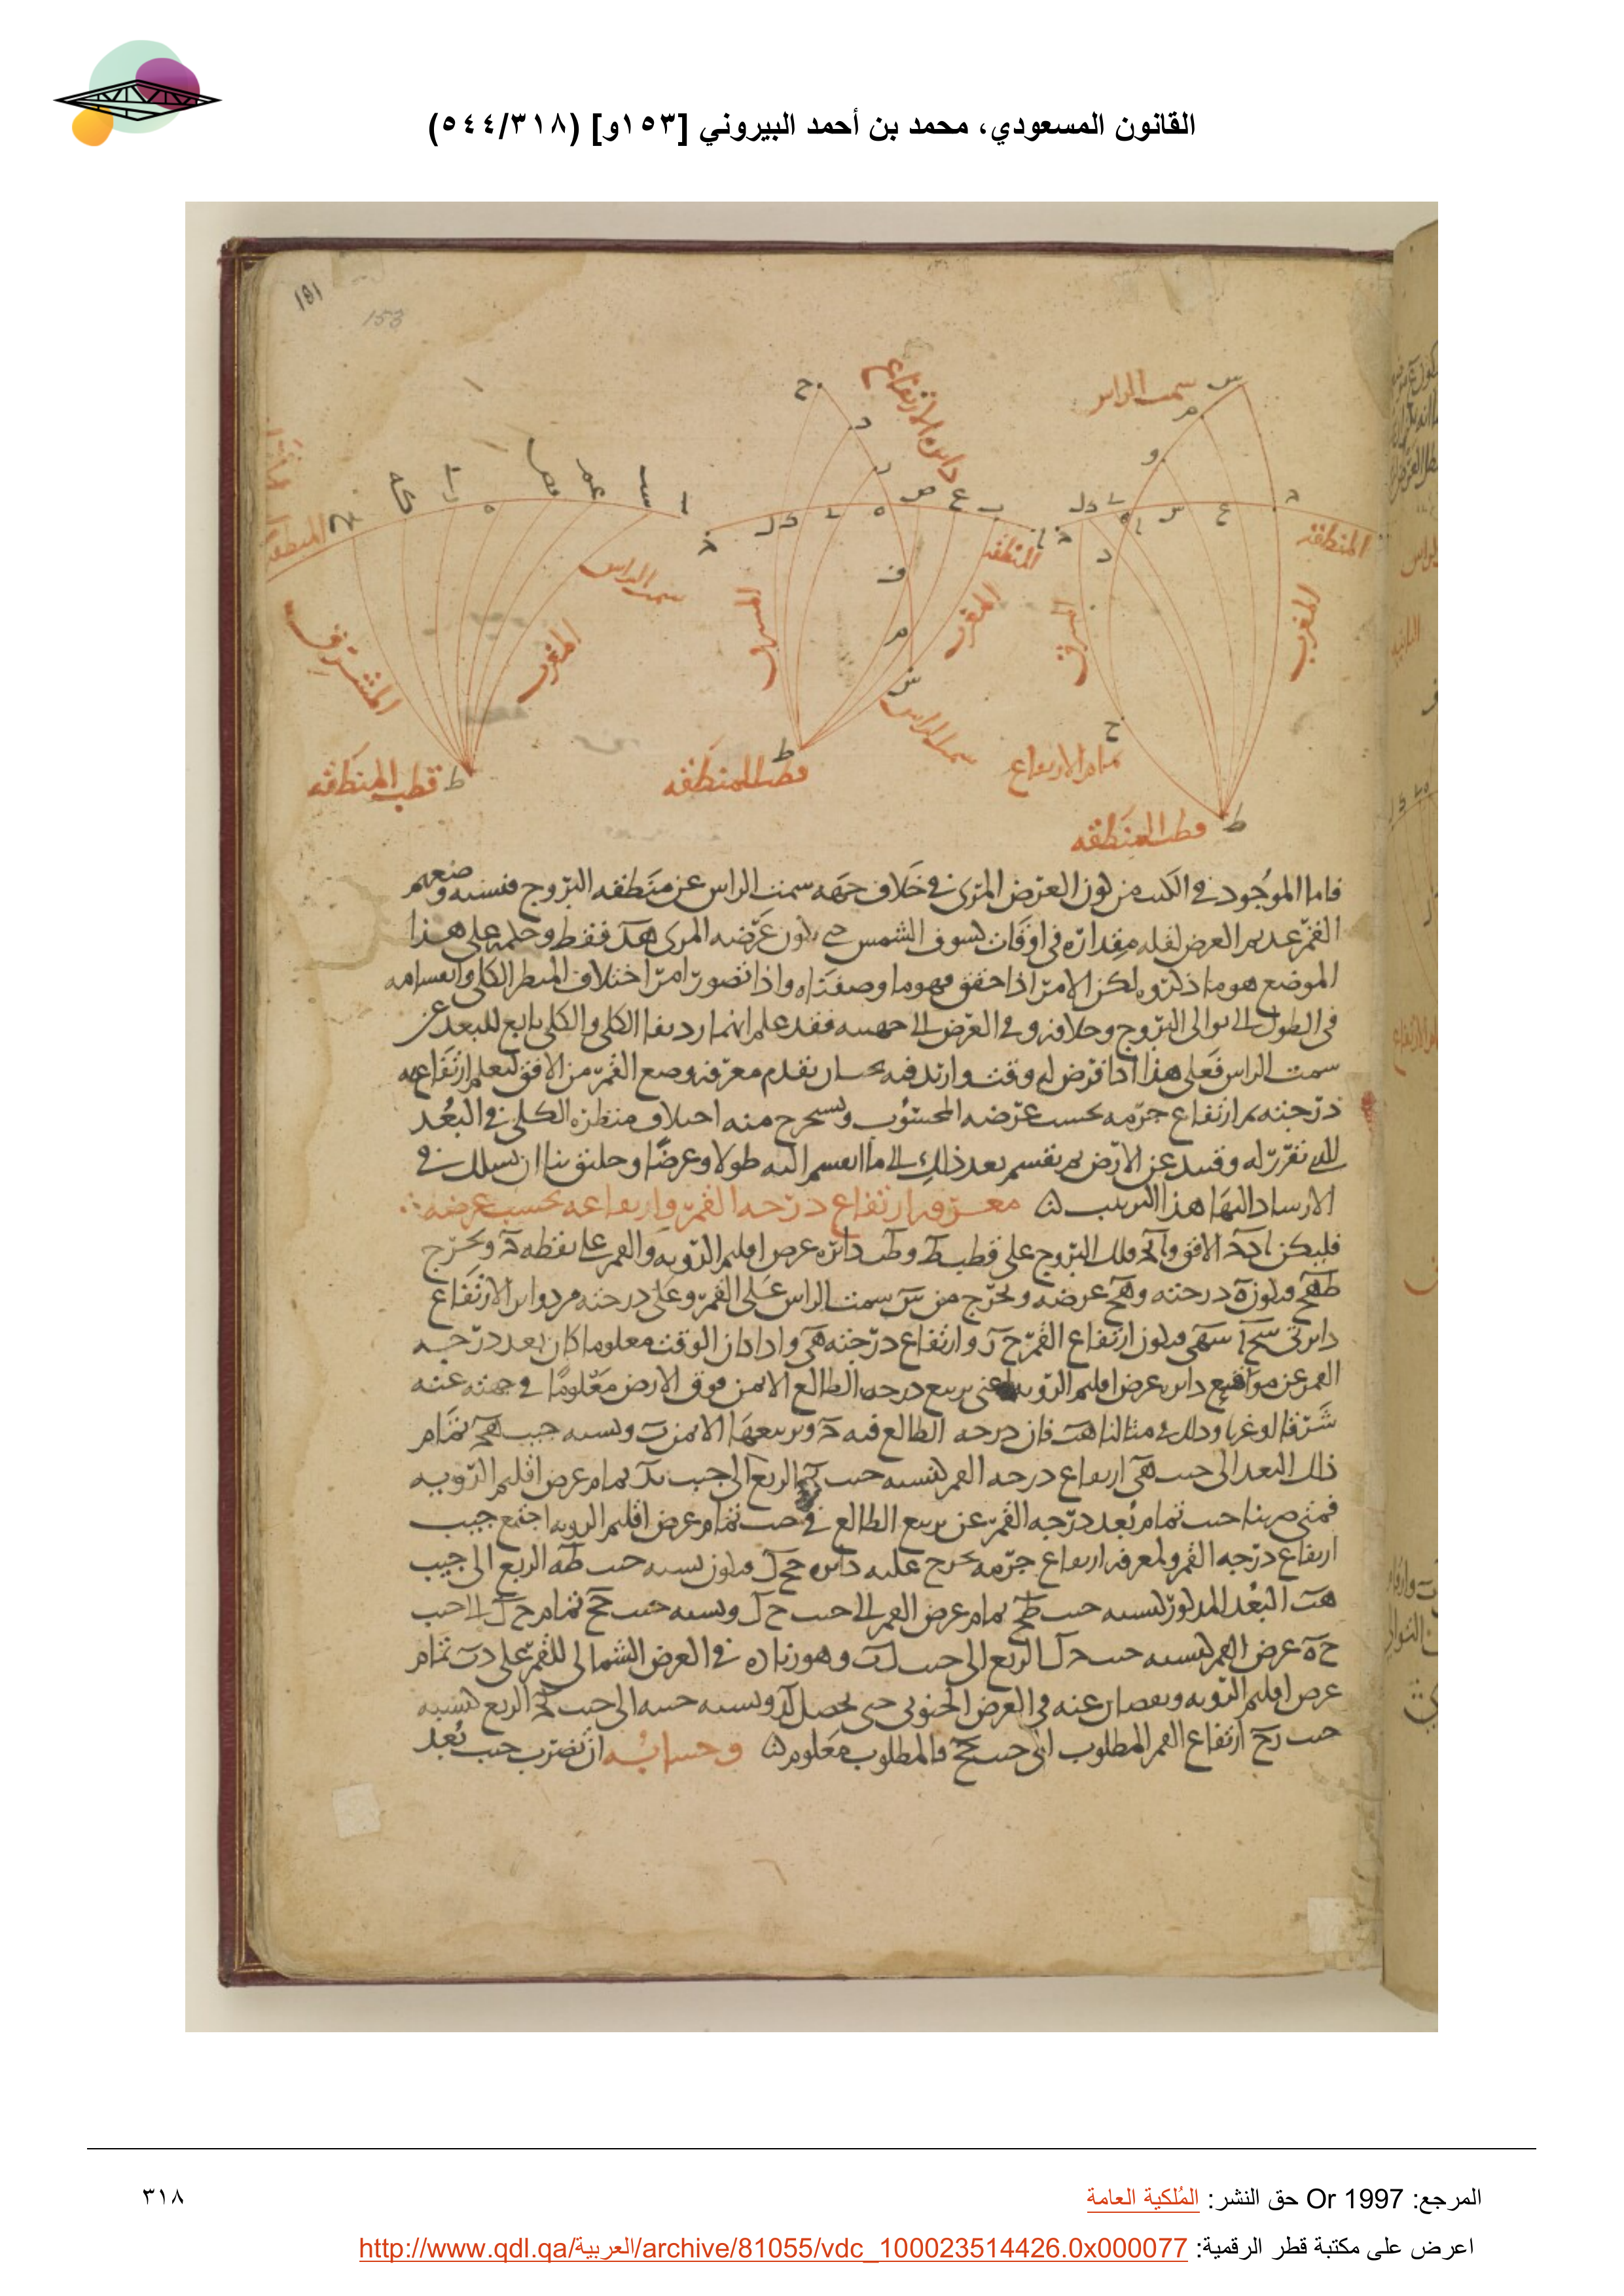 القانون المسعودي، محمد بن أحمد البيروني [١٥٣و] (٥٤٤/٣١٨)
١٥١
153
سمت الراس
دائرة الارتفاع
المنطقة
المنطقة
المنطقة
سمت الراس
المغرب
المشرق
المغرب
المغرب
المشرق
سمت الراس
تمام الارتفاع
قطب المنطقة
قطب المنطقة
قطب المنطقة
فاما الموجود في الكتب من كون العرض المرئي في خلاف جهة سمت الراس عن منطقة البروج فنسبه وضعهم
القمر عديم العرض لقلة مقداره في اوقات كسوف الشمس حتى يكون عرضه المرئي هذا فقط وحكمه على هذا
الموضع هو ما ذكروه لكن الامر اذا حقق فهو ما وصفناه واذا تصور امر اختلاف المنظر الكلي وانقسامه
في الطول الى توالي البروج وخلافه وفي العرض الى جهتيه فقد علم انهما رديفا الكلي والكلي تابع للبعد عن
سمت الراس فعلى هذا اذا فرض له وقت واريد فيه تقدم معرفة وضع القمر من الافق ليعلم ارتفاعه
درجته ثم ارتفاع جرمه بحسب عرضه المحسوب ويستخرج منه اختلاف منظره الكلي في البعد
الذي تقرر له وقتئذ عن الارض ثم يقسم بعد ذلك الى ما انقسم اليه طولا وعرضا وخليق بنا ان نسلك في
الارشاد اليها هذا الترتيب معرفة ارتفاع درجة القمر وارتفاعه بحسب عرضه
فليكن ادج الافق واج فلك البروج على قطب ط وطب دائرة عرض اقليم الرؤية والقمر على نقطة ح ونخرج
طهح فيكون ه درجته وهح عرضه ونخرج من س سمت الراس على القمر وعلى درجته من دوائر الارتفاع
دائرتي سح سهي فيكون ارتفاع القمر حر وارتفاع درجته هي واذا كان الوقت معلوما كان بعد درجة
القمر عن مواضع دائرة عرض اقليم الرؤية اعني تربيع درجة الطالع الايمن فوق الارض معلوما في جهته عنه
شرقا او غربا وذلك في مثالنا هب فان درجة الطالع فيه ج وتربيعها الايمن ب ونسبة جيب هج تمام
ذلك البعد الى جيب هي ارتفاع درجة القمر كنسبة جيب جب الربع الى جيب بد تمام عرض اقليم الرؤية
فمتى ضربنا جيب تمام بعد درجة القمر عن تربيع الطالع في جيب تمام عرض اقليم الرؤية اجتمع جيب
ارتفاع درجة القمر ولمعرفة ارتفاع جرمه نخرج عليه دائرة جحل فيكون نسبة جيب طه الربع الى جيب
هب البعد المذكور كنسبة جيب طح تمام عرض القمر الى جيب حل ونسبة جيب جح تمام حل الى جيب
حه عرض القمر كنسبة جيب جل الربع الى جيب لب وهو زيادة في العرض الشمالي للقمر على دب تمام
عرض اقليم الرؤية ونقصان عنه في العرض الجنوبي حتى يحصل لد ونسبة جيبه الى جيب لج الربع كنسبة
جيب رح ارتفاع القمر المطلوب الى جيب جح فالمطلوب معلوم وحسابه ان نضرب جيب بعد
المرجع: Or 1997 حق النشر: المُلكية العامة
٣١٨
اعرض على مكتبة قطر الرقمية: http://www.qdl.qa/العربية/archive/81055/vdc_100023514426.0x000077